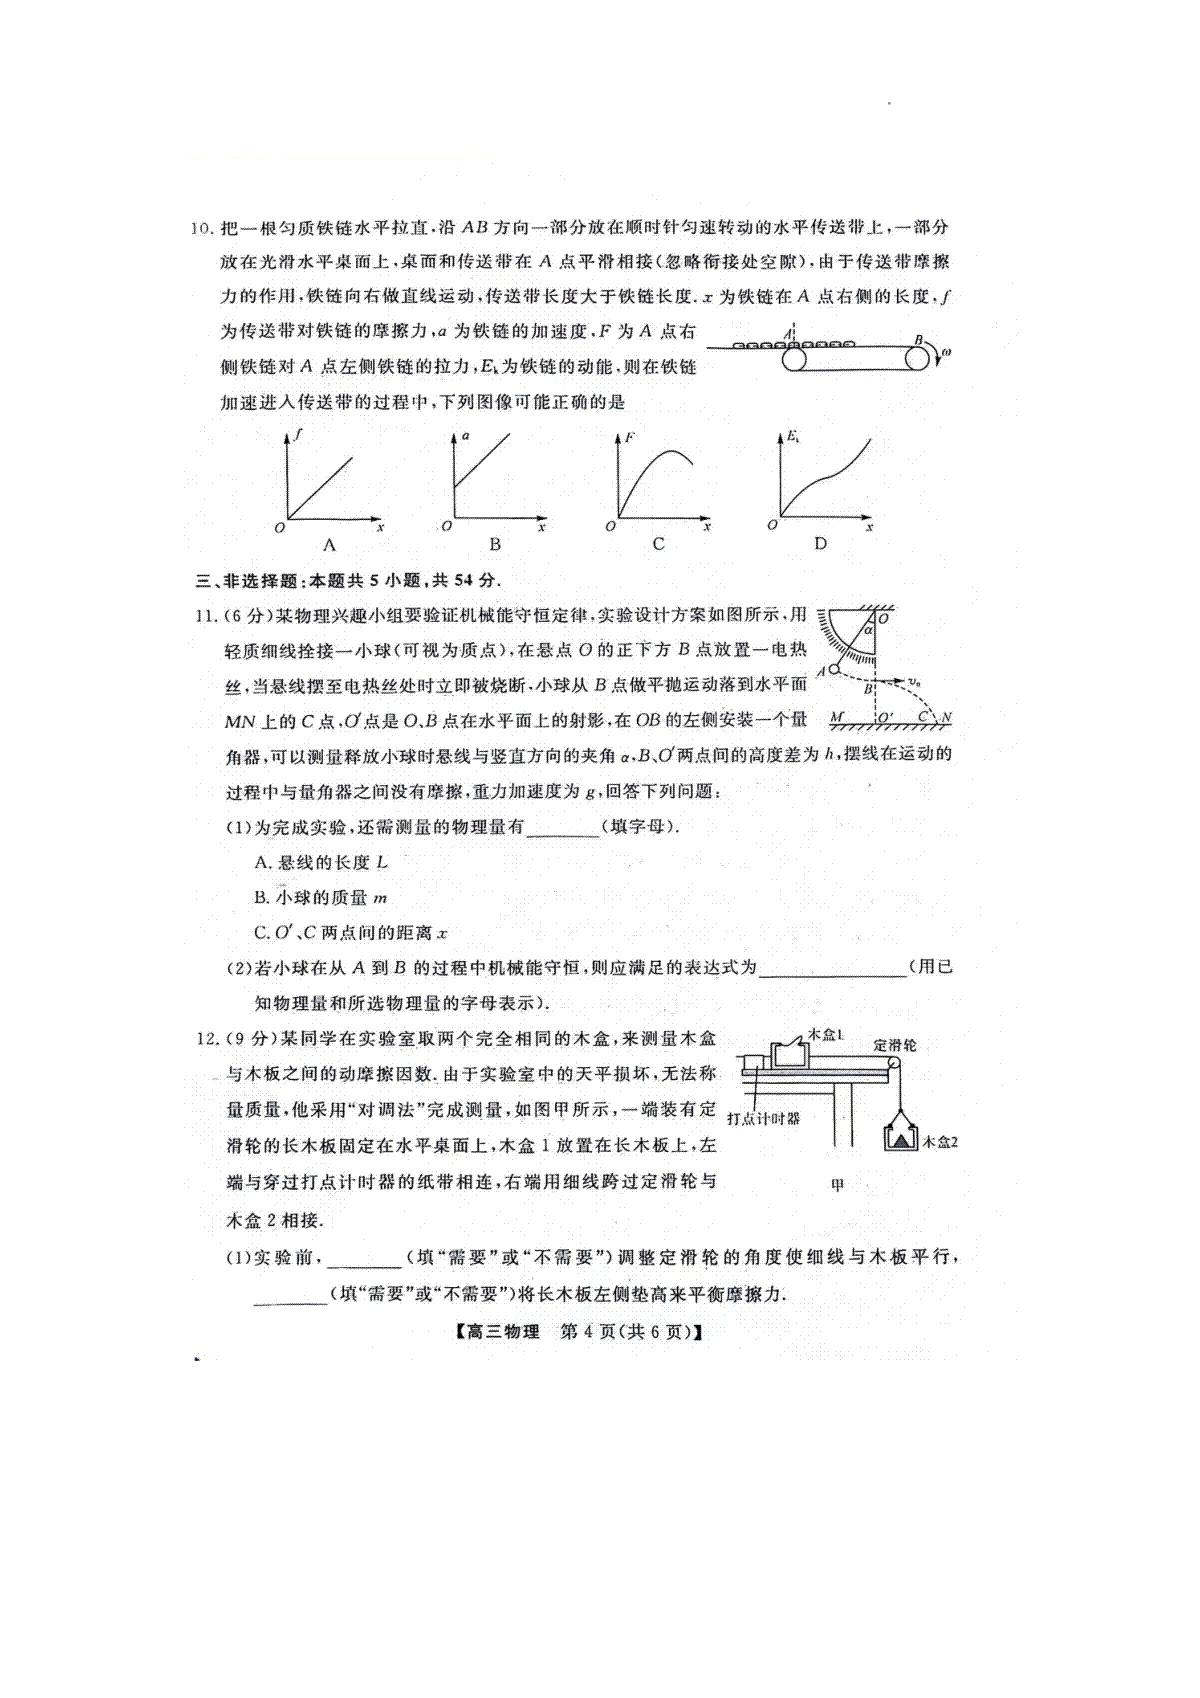 10. 把一根匀质铁链水平拉直,沿 AB 方向一部分放在顺时针匀速转动的水平传送带上,一部分
放在光滑水平桌面上,桌面和传送带在 A 点平滑相接(忽略衔接处空隙),由于传送带摩擦
力的作用,铁链向右做直线运动,传送带长度大于铁链长度. x 为铁链在 A 点右侧的长度, f
为传送带对铁链的摩擦力, a 为铁链的加速度, F 为 A 点右
侧铁链对 A 点左侧铁链的拉力, Eₖ为铁链的动能,则在铁链
加速进入传送带的过程中,下列图像可能正确的是
A
B
ω
f
O
x
A
a
O
x
B
F
O
x
C
Eₖ
O
x
D
三、非选择题:本题共 5 小题,共 54 分.
11. (6 分)某物理兴趣小组要验证机械能守恒定律,实验设计方案如图所示,用
轻质细线拴接一小球(可视为质点),在悬点 O 的正下方 B 点放置一电热
丝,当悬线摆至电热丝处时立即被烧断,小球从 B 点做平抛运动落到水平面
MN 上的 C 点,O′点是 O、B 点在水平面上的射影,在 OB 的左侧安装一个量
角器,可以测量释放小球时悬线与竖直方向的夹角 α,B、O′两点间的高度差为 h,摆线在运动的
过程中与量角器之间没有摩擦,重力加速度为 g,回答下列问题:
O
α
A
B
v₀
M
O′
C
N
(1)为完成实验,还需测量的物理量有________(填字母).
A. 悬线的长度 L
B. 小球的质量 m
C. O′、C 两点间的距离 x
(2)若小球在从 A 到 B 的过程中机械能守恒,则应满足的表达式为________________(用已
知物理量和所选物理量的字母表示).
12. (9 分)某同学在实验室取两个完全相同的木盒,来测量木盒
与木板之间的动摩擦因数. 由于实验室中的天平损坏,无法称
量质量,他采用“对调法”完成测量,如图甲所示,一端装有定
滑轮的长木板固定在水平桌面上,木盒 1 放置在长木板上,左
端与穿过打点计时器的纸带相连,右端用细线跨过定滑轮与
木盒 2 相接.
木盒1
定滑轮
打点计时器
木盒2
甲
(1)实验前,________(填“需要”或“不需要”)调整定滑轮的角度使细线与木板平行,
________(填“需要”或“不需要”)将长木板左侧垫高来平衡摩擦力.
【高三物理 第 4 页(共 6 页)】